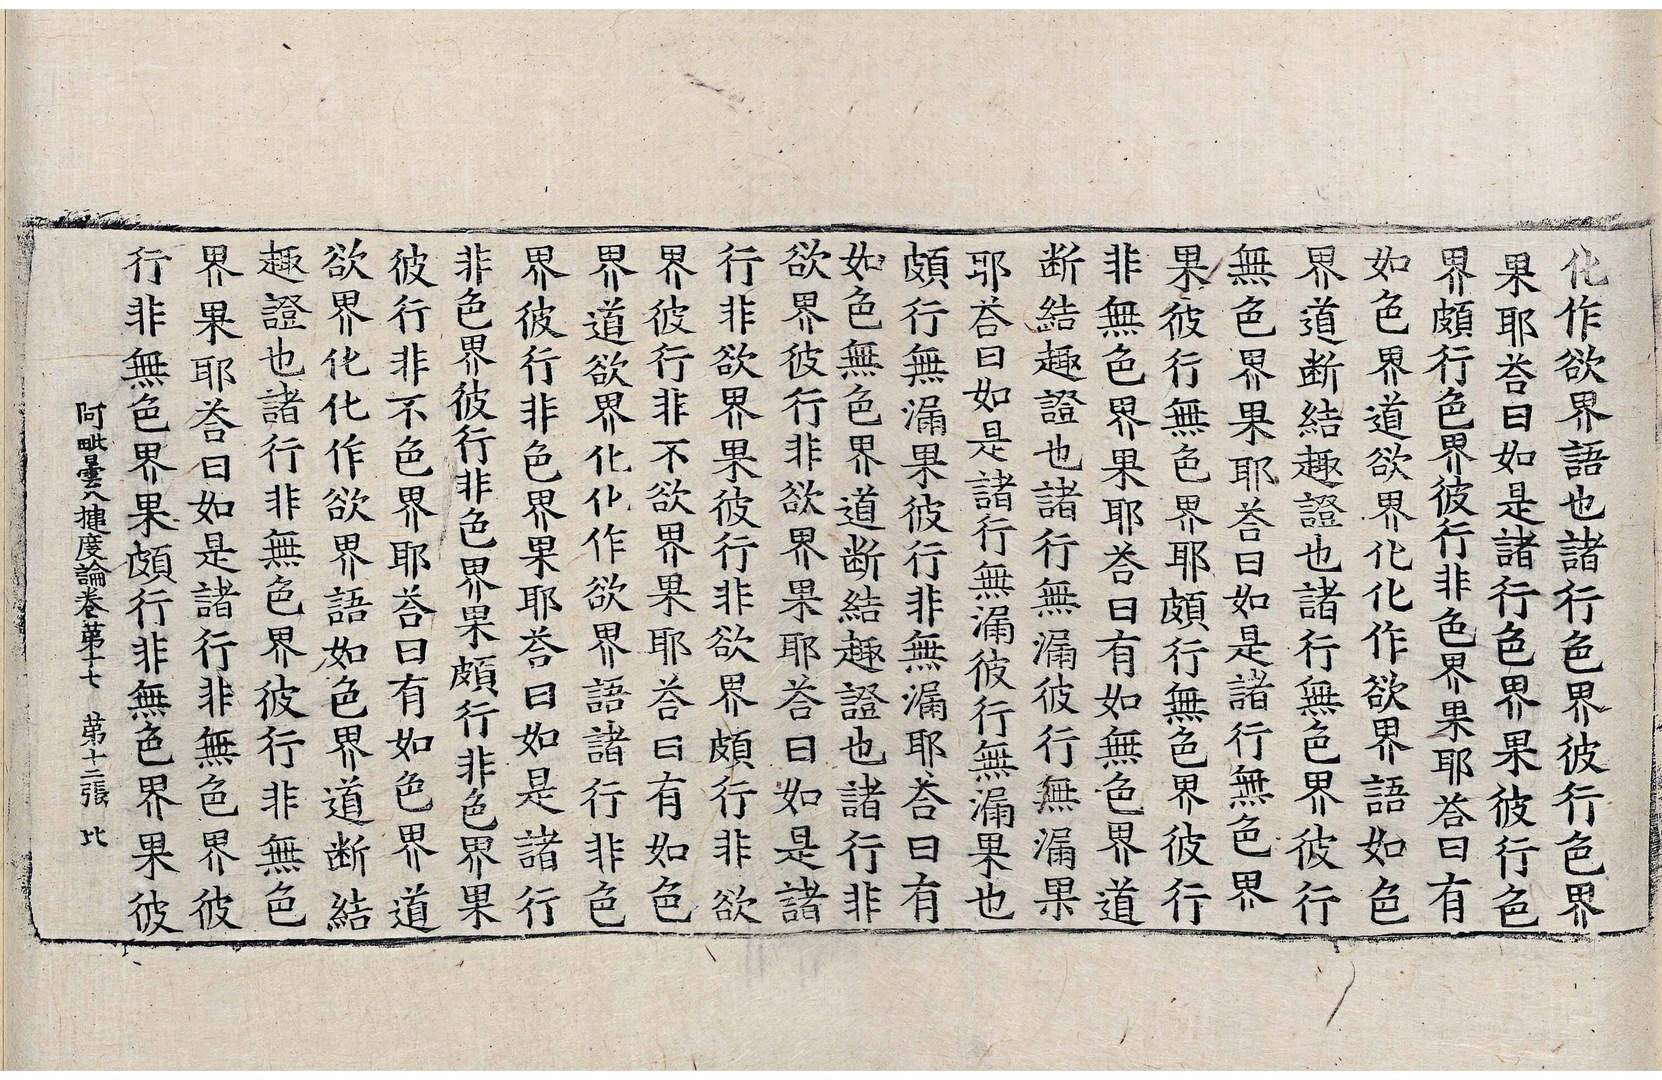 化作欲界語也諸行色界彼行色界
果耶荅曰如是諸行色界果彼行色
界頗行色界彼行非色界果耶荅曰有
如色界道欲界化化作欲界語如色
界道断結趣證也諸行無色界彼行
無色界果耶荅曰如是諸行無色界
果彼行無色界耶頗行無色界彼行
非無色界果耶荅曰有如無色界道
断結趣證也諸行無漏彼行無漏果
耶荅曰如是諸行無漏彼行無漏果也
頗行無漏果彼行非無漏耶荅曰有
如色無色界道断結趣證也諸行非
欲界彼行非欲界果耶荅曰如是諸
行非欲界果彼行非欲界頗行非欲
界彼行非不欲界果耶荅曰有如色
界道欲界化化作欲界語諸行非色
界彼行非色界果耶荅曰如是諸行
非色界彼行非色界果頗行非色界果
彼行非不色界耶荅曰有如色界道
欲界化化作欲界語如色界道断結
趣證也諸行非無色界彼行非無色
界果耶荅曰如是諸行非無色界彼
行非無色界果頗行非無色界果彼
阿毗曇八揵度論卷第十七 第十二張 比